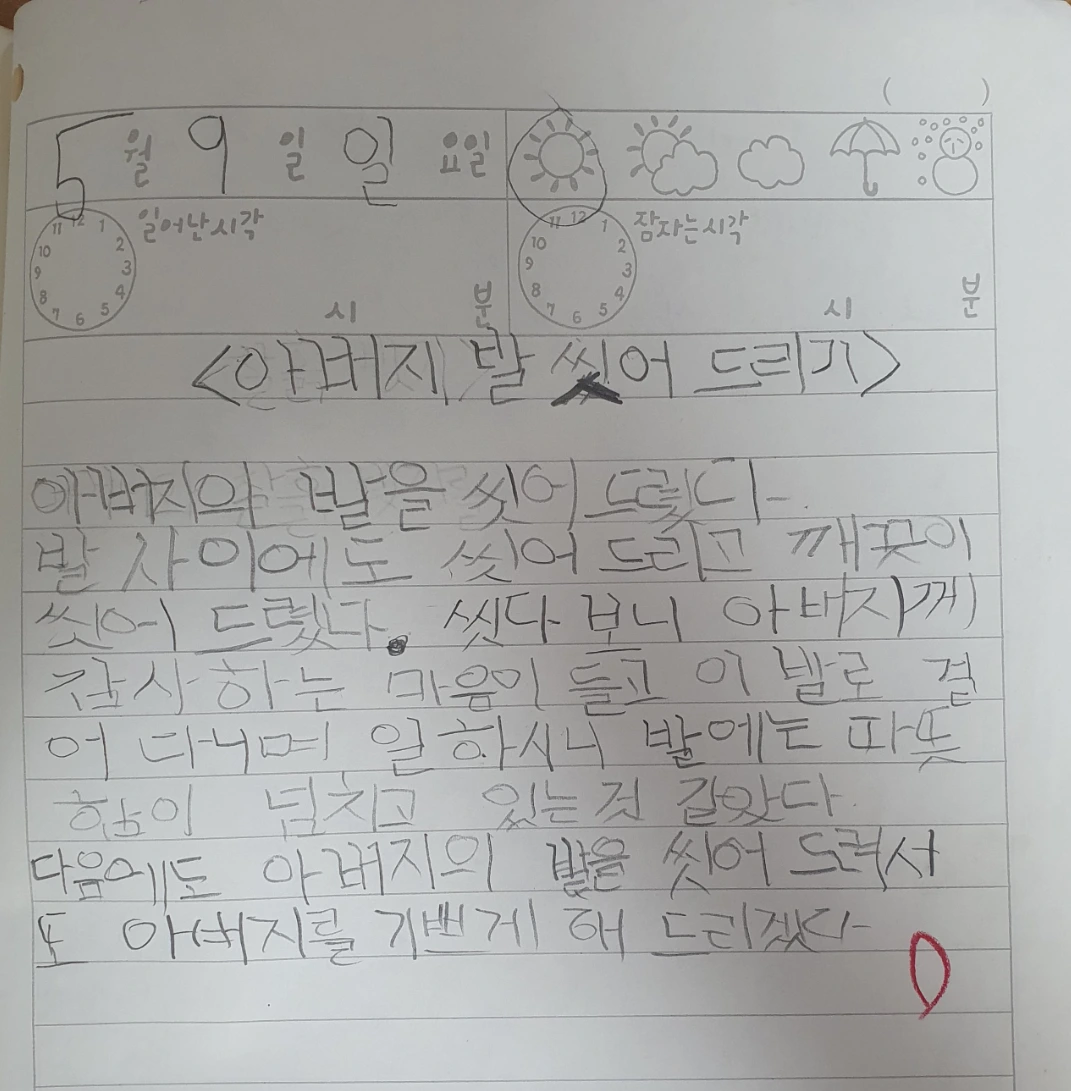 ( )
5월 9일 일요일
일어난시각 잠자는시각
11 12 1 2 3 4 5 6 7 8 9 10
11 12 1 2 3 4 5 6 7 8 9 10
시 분 시 분
<아버지 발 씻어 드리기>
아버지의 발을 씻어 드렸다
발 사이에도 씻어 드리고 깨끗이
씻어 드렸다. 씻다 보니 아버지께
감사 하는 마음이 들고 이 발로 걸
어 다니며 일 하시니 발에는 따뜻
함이 넘치고 있는것 같았다
다음에도 아버지의 발을 씻어 드려서
또 아버지를 기쁘게 해 드리겠다